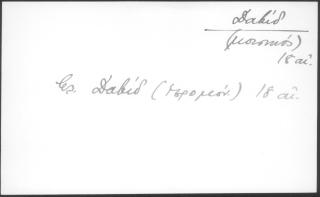 Δαβίδ
(μουσικός)
18 αἰ.
Ἐς. Δαβίδ (ἱερομόν.) 18 αἰ.